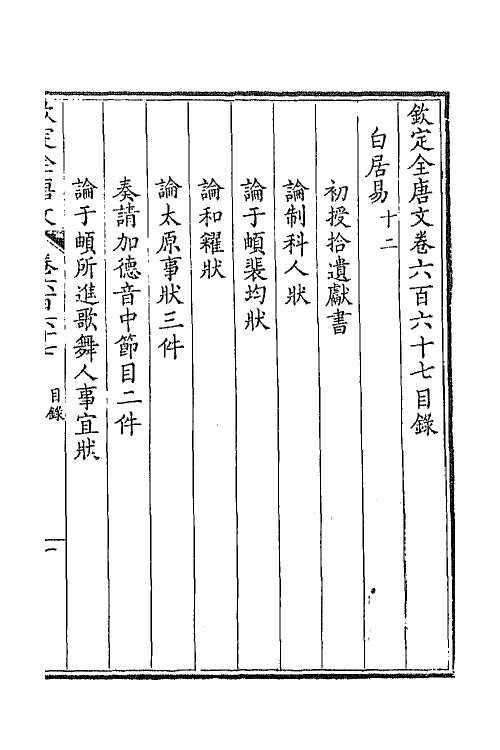 欽定全唐文卷六百六十七目錄
白居易十二
初授拾遺獻書
論制科人狀
論于頔裴均狀
論和糴狀
論太原事狀三件
奏請加德音中節目二件
論于頔所進歌舞人事宜狀
欽定全唐文 卷六百六十七 目錄 一